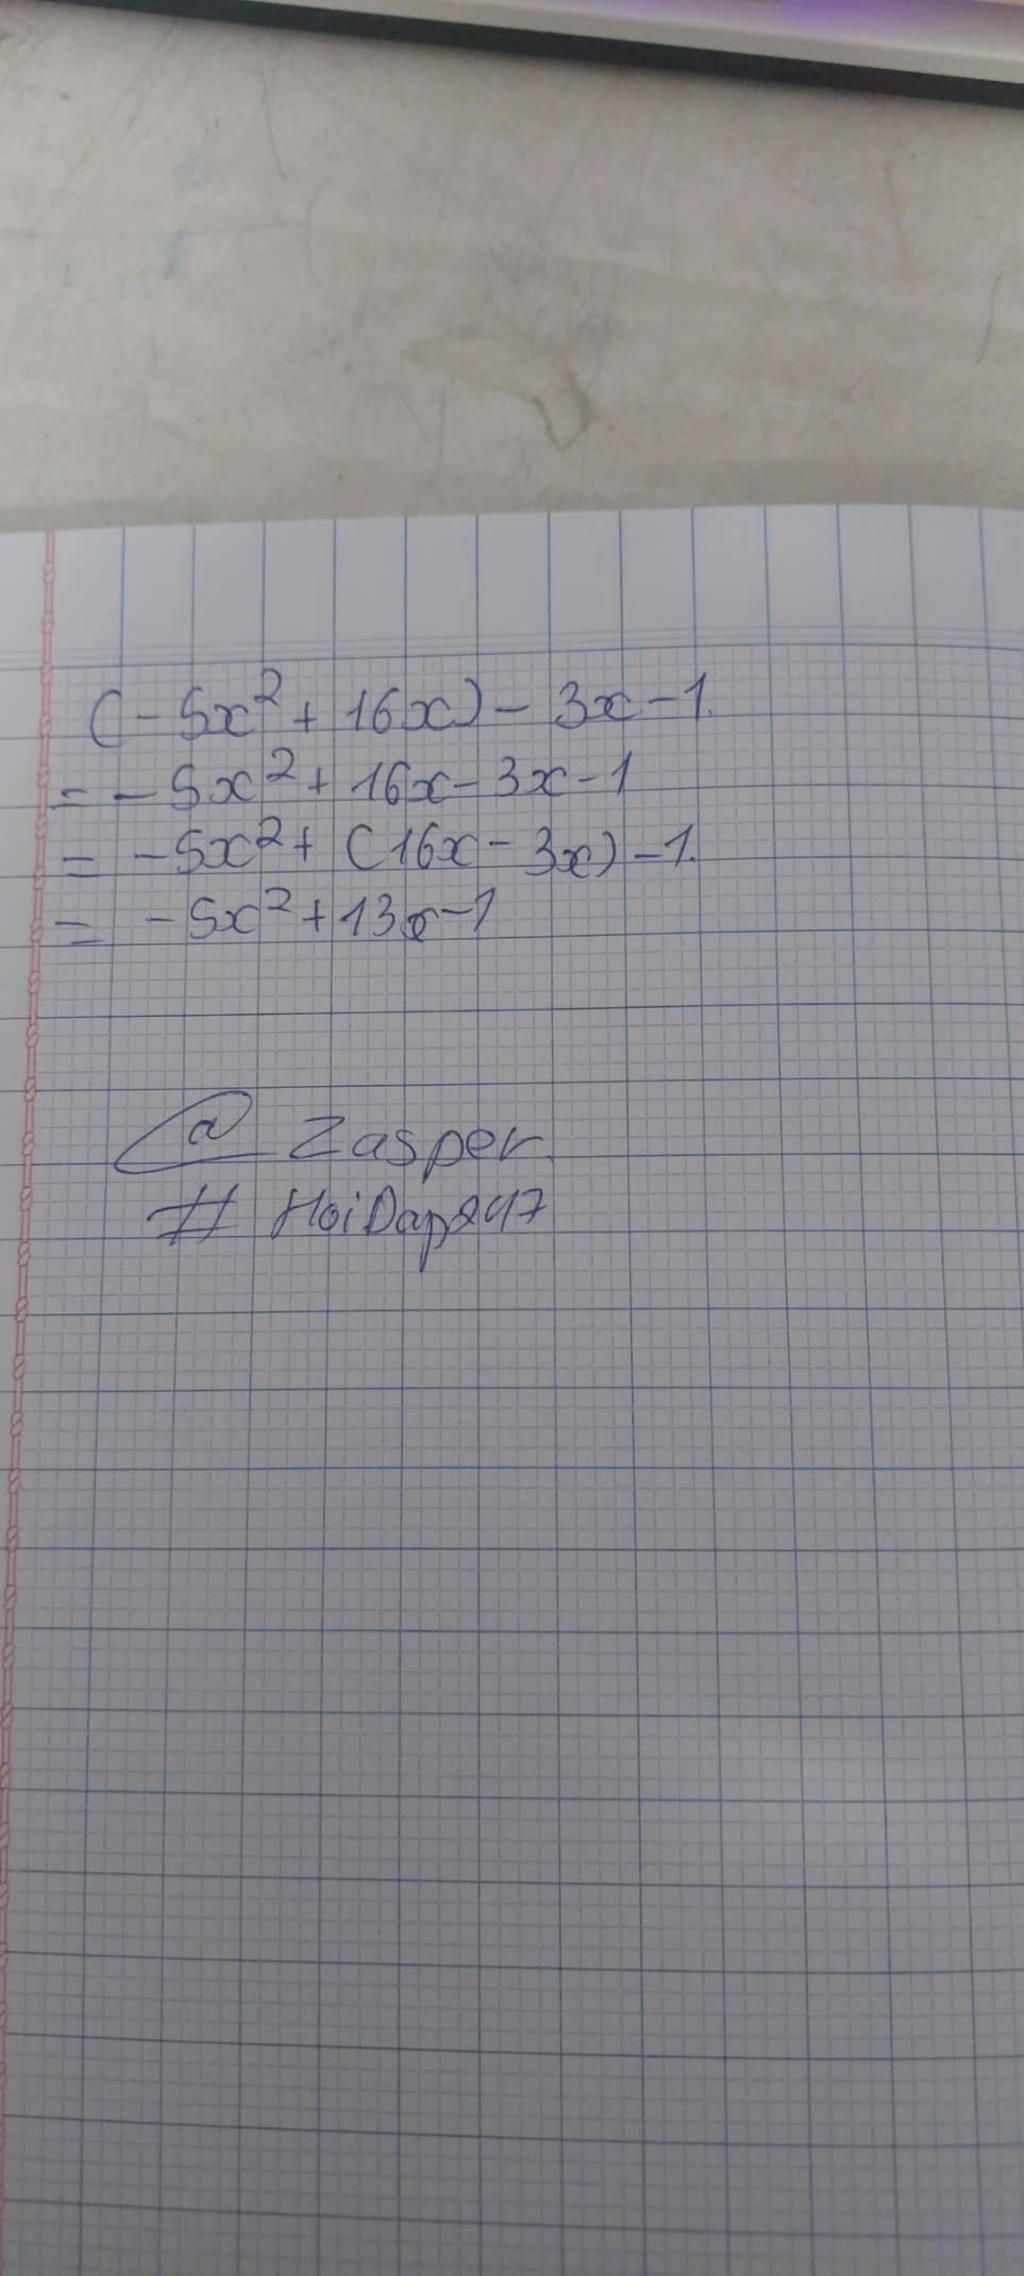 (-5x² + 16x) - 3x - 1.
= -5x² + 16x - 3x - 1
= -5x² + (16x - 3x) - 1.
= -5x² + 13x - 1
@ Zasper.
# HoiDap247